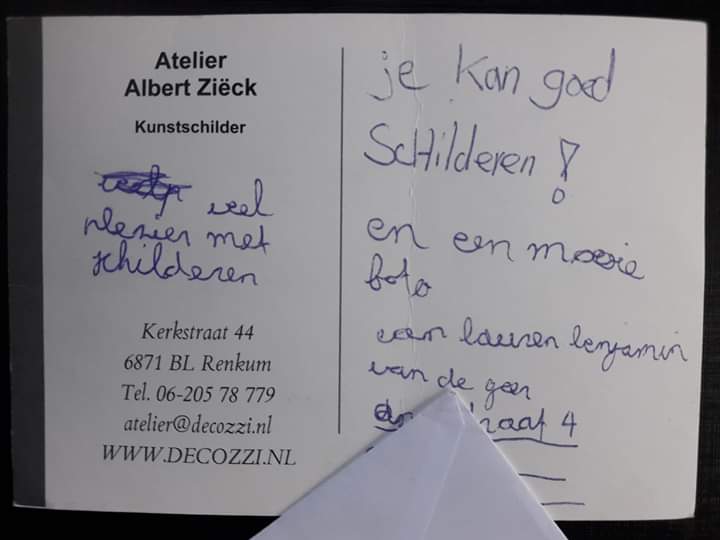 Atelier
Albert Ziëck
Kunstschilder
veel
plezier met
schilderen
Kerkstraat 44
6871 BL Renkum
Tel. 06-205 78 779
atelier@decozzi.nl
WWW.DECOZZI.NL
je kan goed
Schilderen!
en een mooie
foto
van lauren benjamin
van de geer
raat 4